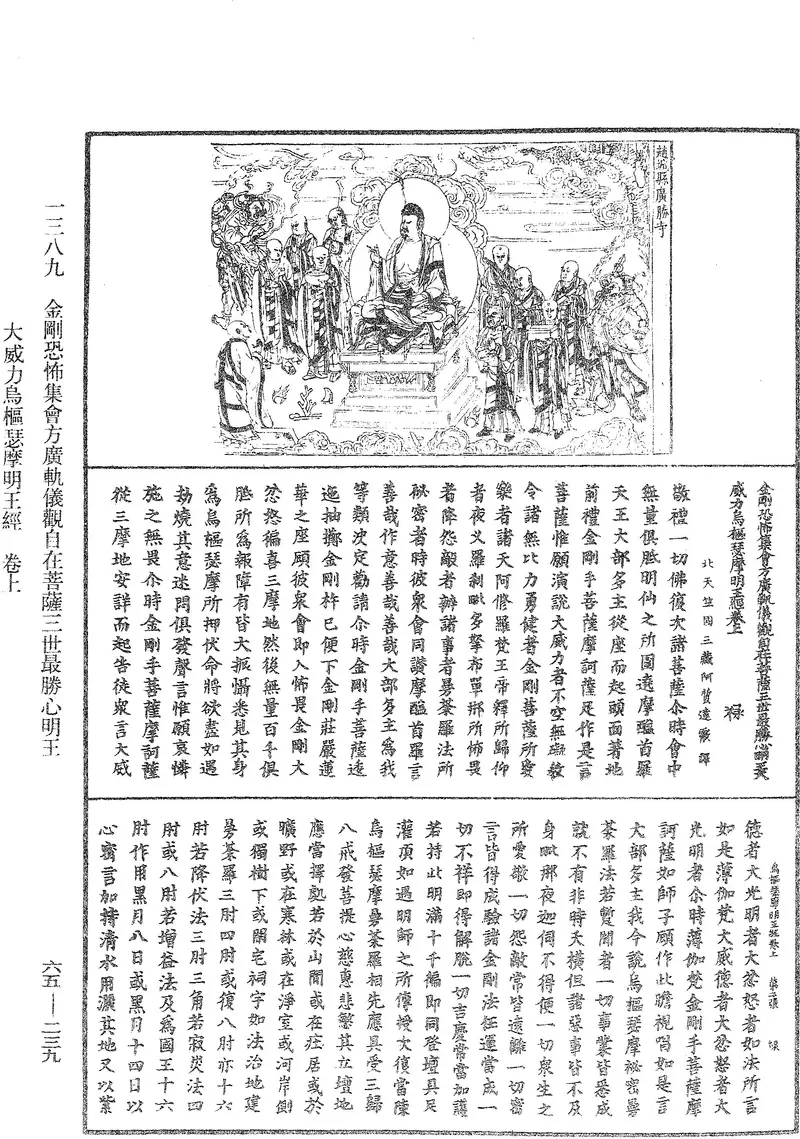 趙城縣廣勝寺
金剛恐怖集會方廣軌儀觀自在菩薩三世最勝心明王大
威力烏樞瑟摩明王經卷上
北天竺國三藏阿質達霰譯
敬禮一切佛復次諸菩薩尒時會中
無量俱胝明仙之所圍遶摩醯首羅
天王大部多主從座而起頭面著地
前禮金剛手菩薩摩訶薩足作是言
菩薩惟願演說大威力者不空無礙教
令諸無比力勇健者金剛菩薩所愛
樂者諸天阿脩羅梵王帝釋所歸仰
者夜叉羅刹毗多拏布單那所怖畏
者降怨敵者辦諸事者曼荼羅法所
秘密者時彼衆會同讚摩醯首羅言
善哉作意善哉善哉大部多主爲我
等類決定勸請尒時金剛手菩薩遙
迴抽擲金剛杵已便下金剛莊嚴蓮
華之座顧彼衆會即入怖畏金剛大
忿怒徧喜三摩地然後無量百千俱
胝所爲報障有皆大振懾悉見其身
爲烏樞瑟摩所押伏命將欲盡如遇
劫燒其意迷悶俱發聲言惟願哀憐
施之無畏尒時金剛手菩薩摩訶薩
從三摩地安詳而起告徒衆言大威
德者大光明者大忿怒者如法所言
如是薄伽梵大威德者大忿怒者大
光明者尒時薄伽梵金剛手菩薩摩
訶薩如師子顧作此瞻視唱如是言
大部多主我今說烏樞瑟摩秘密曼
荼羅法若暫聞者一切事業皆悉成
就不有非時夭橫但諸惡事皆不及
身毗那夜迦伺不得便一切衆生之
所愛敬一切怨敵常皆遠離一切密
言皆得成驗諸金剛法任運當成一
切不祥即得解脫一切吉慶常當加護
若持此明滿十千徧即同登壇具足
灌頂如遇明師之所傳授大復當陳
烏樞瑟摩曼荼羅相先應具受三歸
八戒發菩提心慈惠悲愍其立壇地
應當擇處若於山間或在住居或於
曠野或在寒林或在淨室或河岸側
或獨樹下或閑宅祠宇如法治地建
曼荼羅三肘四肘或復八肘亦十六
肘若降伏法三肘三角若寂災法四
肘或八肘若增益法及爲國王十六
肘作用黑月八日或黑月十四日以
心密言加持清水用灑其地又以紫
一三八九　金剛恐怖集會方廣軌儀觀自在菩薩三世最勝心明王
大威力烏樞瑟摩明王經　卷上
六五—二三九